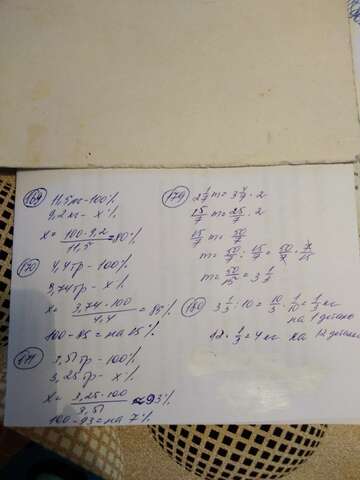 169
11,5 кг - 100%
9,2 кг - x%
x = 100·9,2 / 11,5 = 80%
170
4,4 гр - 100%
3,74 гр - x%
x = 3,74·100 / 4,4 = 85%
100-85 = на 15%
171
3,51 гр - 100%
3,25 гр - x%
x = 3,25·100 / 3,51 ≈ 93%
100-93 = на 7%
179
2 1/7 m = 3 4/7 · 2
15/7 m = 25/7 · 2
15/7 m = 50/7
m = 50/7 : 15/7 = 50/7 · 7/15
m = 50/15 = 3 1/3
180
3 1/3 : 10 = 10/3 · 1/10 = 1/3 кг
на 1 деталь
12 · 1/3 = 4 кг на 12 деталей